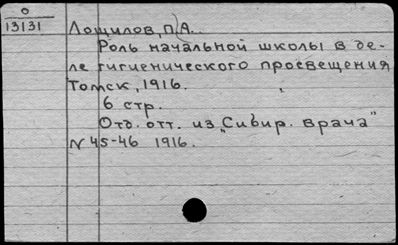 О
13131
Лощилов, П. А.
Роль начальной школы в де-
ле гигиенического просвещения
Томск, 1916.
6 стр.
Отд. отт. из „Сибир. врача"
N 45-46 1916.